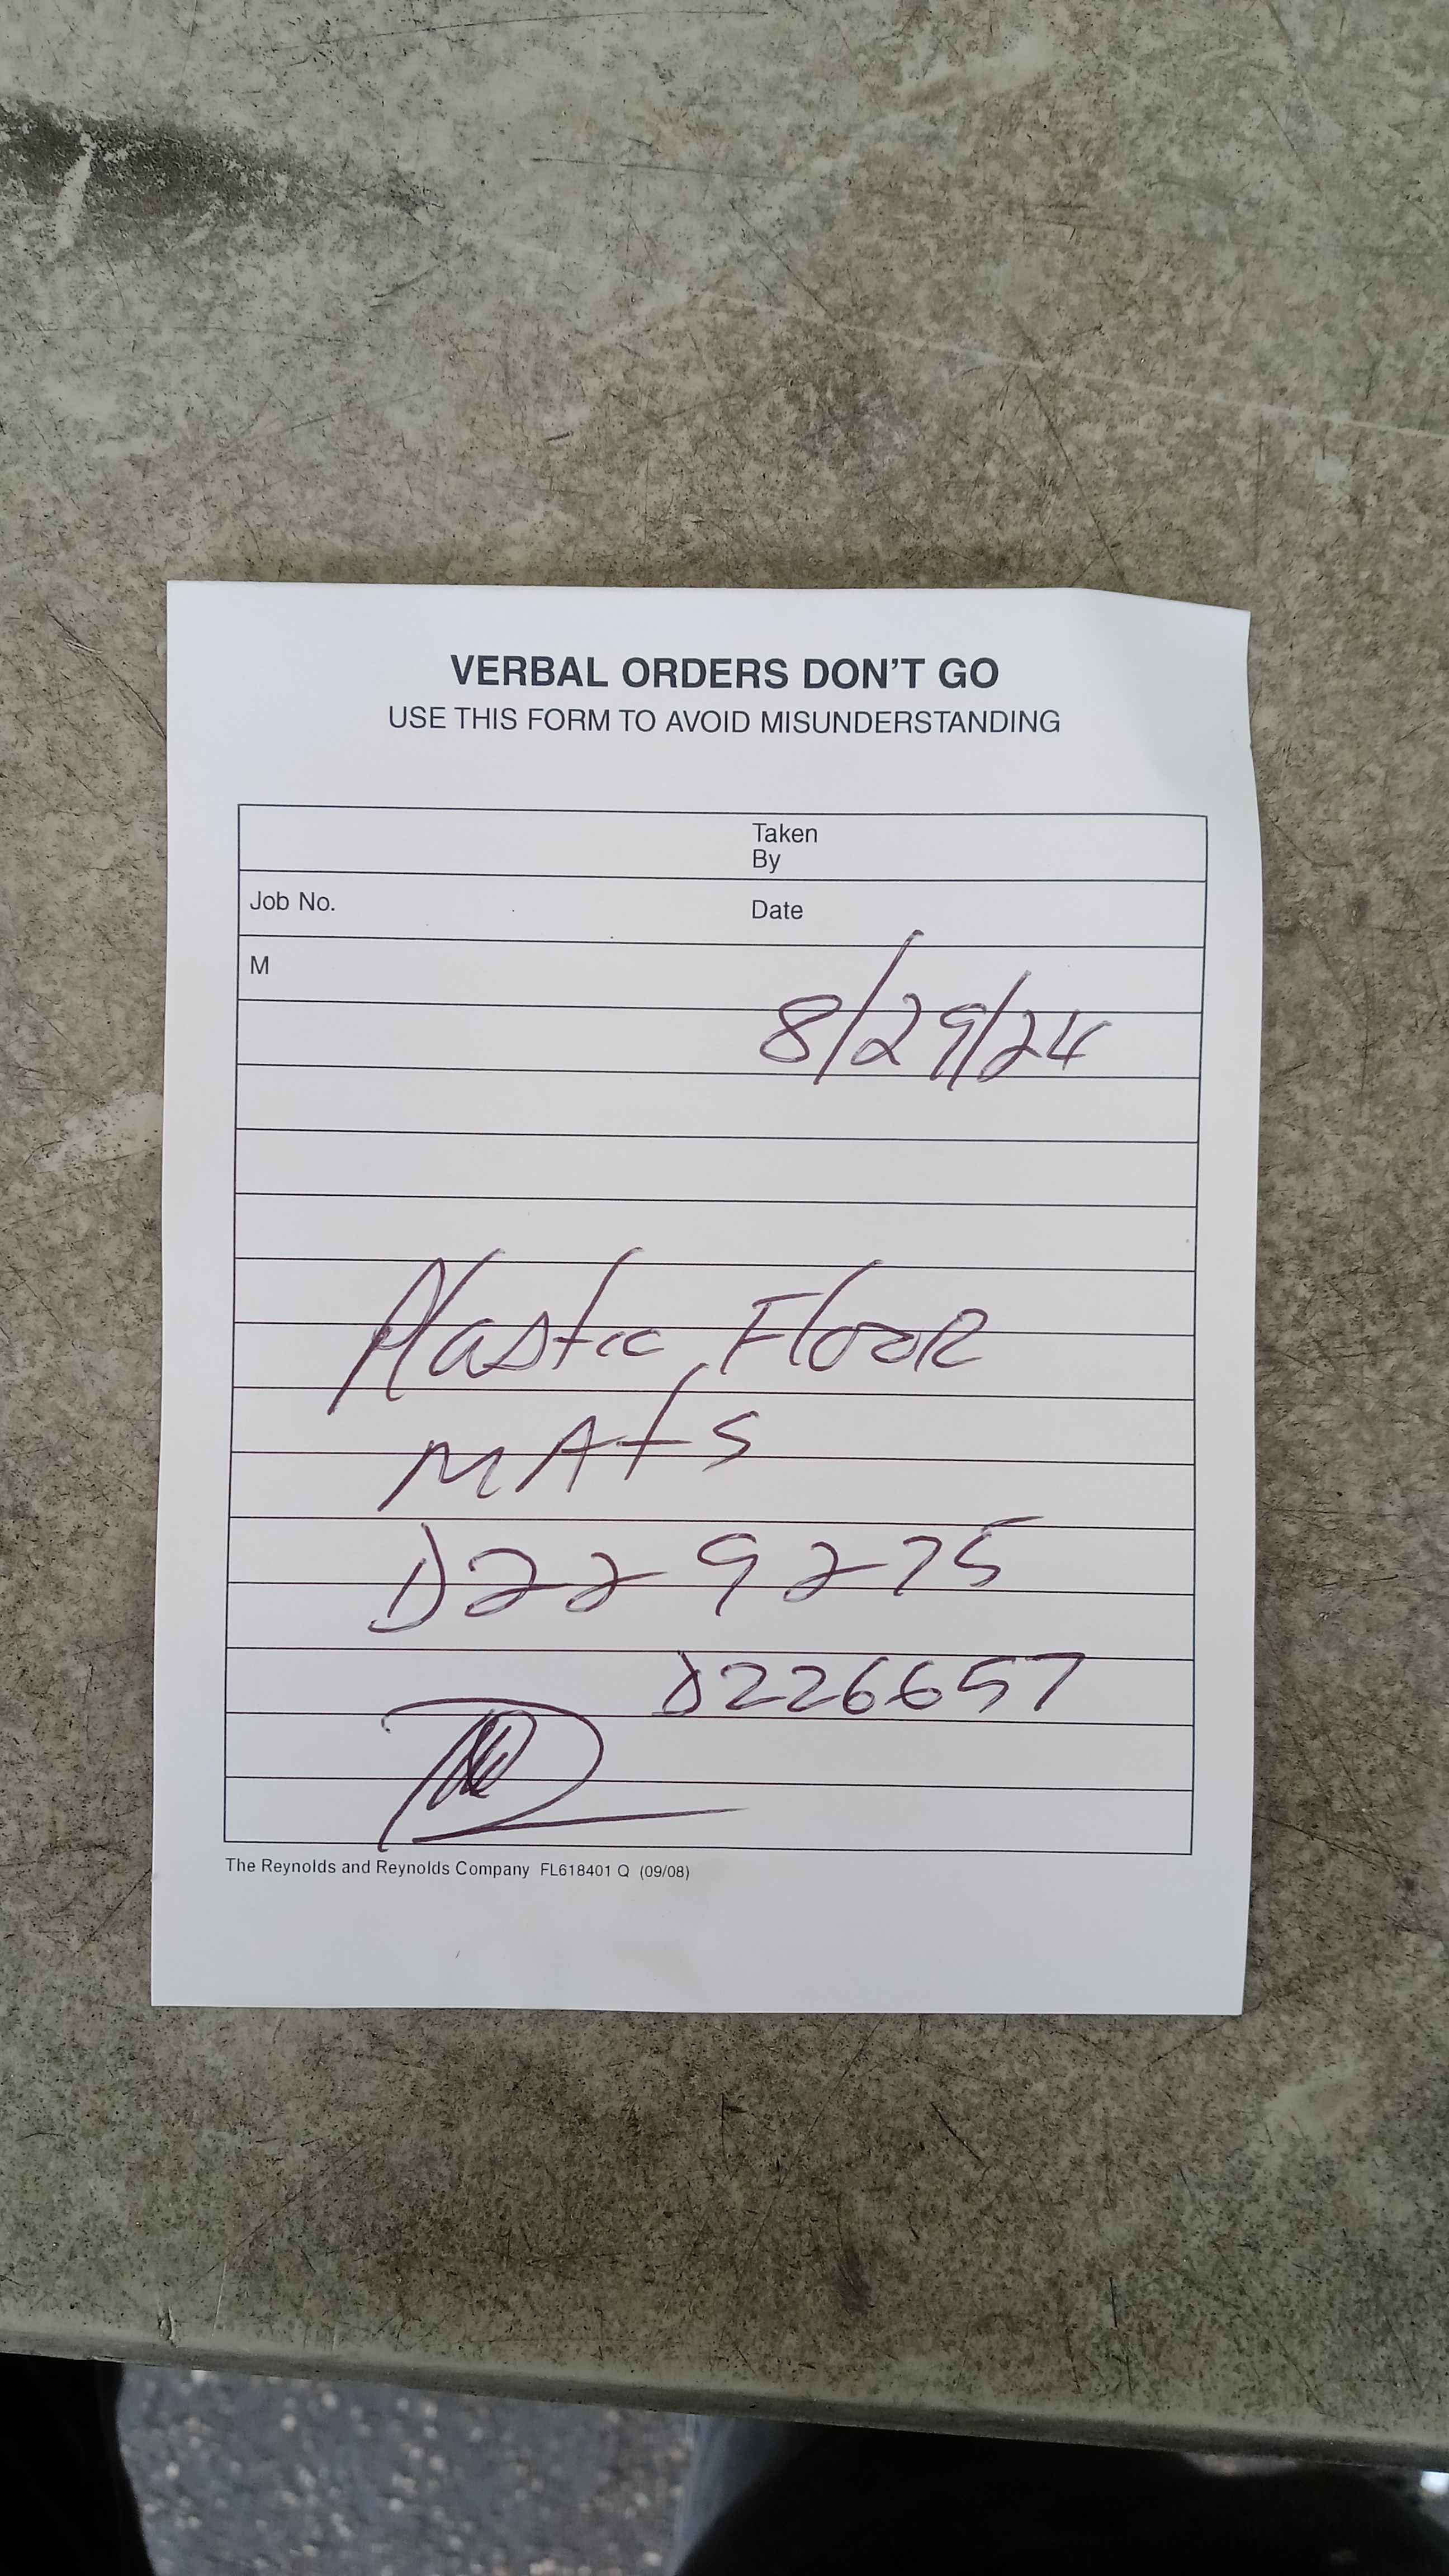 VERBAL ORDERS DON'T GO
USE THIS FORM TO AVOID MISUNDERSTANDING
Taken
By
Job No. Date
M
8/29/24
Plastic Floor
MAts
D229275
D226657
The Reynolds and Reynolds Company FL618401 Q (09/08)